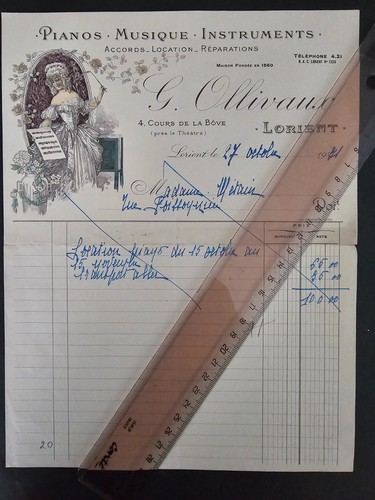 Pianos · Musique · Instruments ·
Accords_Location_Réparations
Maison Fondée en 1860
Téléphone 4.31
G. Ollivaux
4, Cours de la Bôve
(près le Théâtre)
· Lorient ·
Lorient le 27 octobre
Madame
rue
Doit
Location piano du 15 octobre au
15 novembre
Transport aller
65 00
35 00
100 00
20